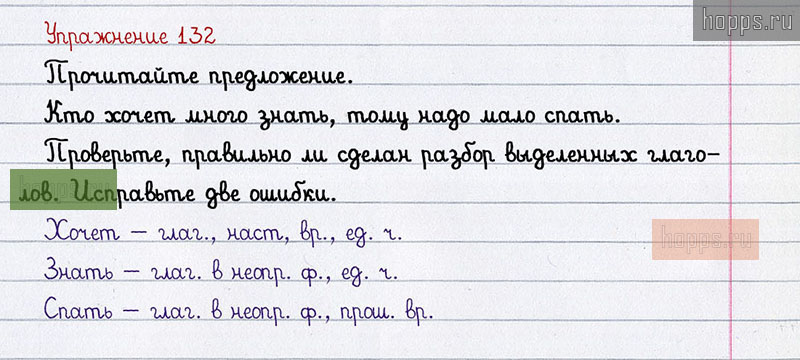 hopps.ru
Упражнение 132
Прочитайте предложение.
Кто хочет много знать, тому надо мало спать.
Проверьте, правильно ли сделан разбор выделенных глаго-
лов. Исправьте две ошибки.
Хочет — глаг., наст, вр., ед. ч.
hopps.ru
Знать — глаг. в неопр. ф., ед. ч.
Спать — глаг. в неопр. ф., прош. вр.